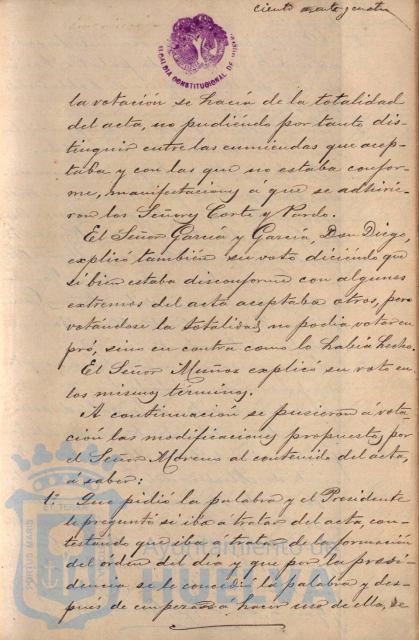 ciento cuenta y cuatro
ALCALDIA CONSTITUCIONAL DE
la votación se hacía de la totalidad
del acta, no pudiendo por tanto dis-
tinguir entre las enmiendas que acep-
taba y con las que no estaba confor-
me, manifestaciones a que se adhirie-
ron los Señores Corte y Pardo.
El Señor García y García, Don Diego,
explicó también su voto diciendo que
si bien estaba disconforme con algunos
extremos del acta aceptaba otros, pero
votándose la totalidad, no podía votar en
pró, sino en contra como lo había hecho.
El Señor Muñoz explicó su voto en
los mismos términos.
A continuación se pusieron á vota-
ción las modificaciones propuestas por
el Señor Moreno al contenido del acta,
á saber:
1º Que pidió la palabra y el Presidente
le preguntó si iba a tratar del acta, con-
testando que iba a tratar de la formación
del órden del dia y que por la presi-
dencia se le concedió la palabra y des-
pués de empezar a hacer uso de ella, se
Ayuntamiento de
HUELVA
PORTUS MARIS
ET TERRAE